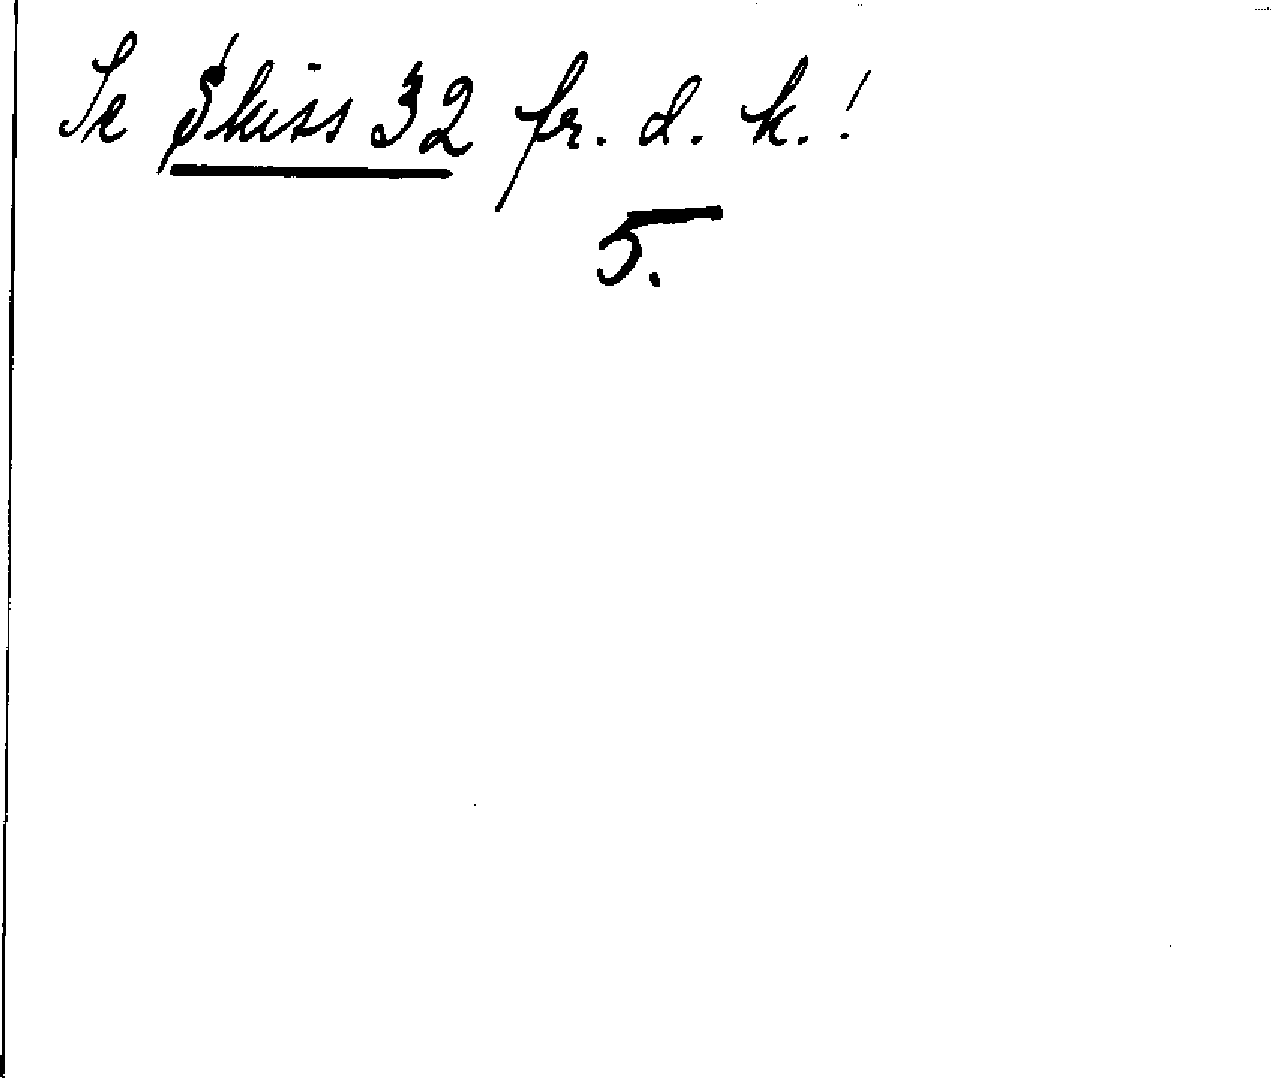 Se Skiss 32 fr. d. k.!
5.